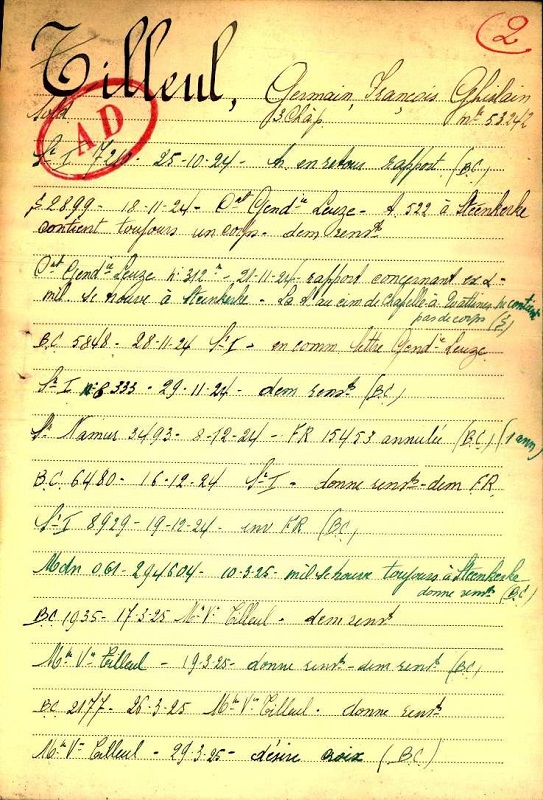 2
Tilleul, Germain, François Ghislain
Sold 3 Chàp. n° 53242
AD
St I. 25-10-24 - en retour rapport (BC)
E2899 - 18-11-24 - Ct Gendie Leuze - A 522 à Steenkerke
contient toujours un corps - dem rensts
Ct Gendie Leuze n° 312 - 21-11-24, rapport concernant ex d -
mil se trouve à Steenkerke - La d au cim de Chapelle-à-Wattines ne contient
pas de corps (S)
BC 5848 - 28-11-24 St I - en comm lettre Gendie Leuze
St I n° 8333 - 29-11-24 - dem rensts (BC)
St Namur 3493 - 8-12-24 - FR 15453 annulée (BC) (1 ann)
B.C. 6480 - 16-12-24 St I - donne rensts - dem FR
St I 8929 - 19-12-24 - env FR (BC)
Mdn 061 - 294604 - 10-3-25 - mil se trouve toujours à Steenkerke
donne rensts (BC)
BC 1935 - 17-3-25 Me Ve Tilleul - dem rensts
Me Ve Tilleul - 19-3-25 - donne rensts - dem rensts (BC)
BC 2177 - 26-3-25 Me Ve Tilleul - donne rensts
Me Ve Tilleul - 29-3-25 - désire croix (B.C.)